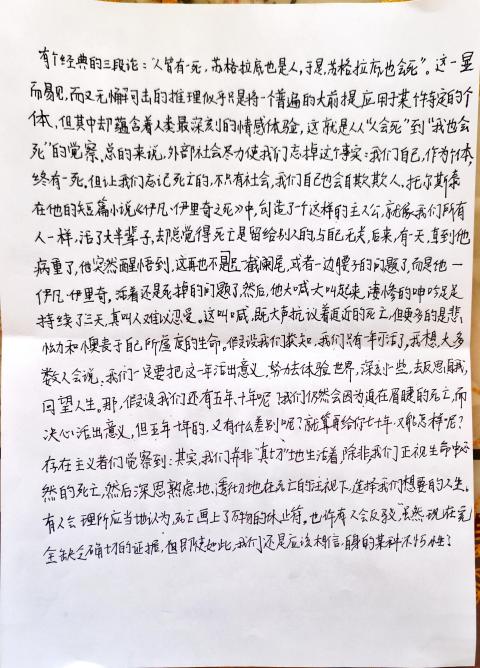 有个经典的三段论：“人皆有一死，苏格拉底也是人，于是，苏格拉底也会死”。这一显
而易见，而又无懈可击的推理似乎只是将一个普遍的大前提应用于某个特定的个
体，但其中却蕴含着人类最深刻的情感体验，这就是从“人会死”到“我也会
死”的觉察，总的来说，外部社会尽力使我们忘掉这个事实：我们自己，作为个体，
终有一死，但让我们忘记死亡的，不只有社会，我们自己也会自欺欺人，托尔斯泰
在他的短篇小说《伊凡·伊里奇之死》中，创造了一个这样的主人公，就像我们所有
人一样，活了大半辈子，却总觉得死亡是留给别人的，与己无关，后来，有一天，直到他
病重了，他突然醒悟到，这再也不是一截阑尾，或者一边腰子的问题了，而是他一
伊凡·伊里奇，活着还是死掉的问题了，然后，他大喊大叫起来，凄惨的呻吟足足
持续了三天，真叫人难以忍受。这叫喊，既大声抗议着逼近的死亡，但更多的是悲
恸和懊丧于自己所虚度的生命。假设我们获知，我们只有一年可活了，我想大多
数人会说，我们一定要把这一年活出意义，努力去体验世界，深刻一些，去反思自我，
回望人生。那，假设我们还有五年、十年呢？我们仍然会因为迫在眉睫的死亡，而
决心活出意义，但五年十年的，又有什么差别呢？就算再给你七十年，又能怎样呢？
存在主义者们觉察到：其实，我们并非“真切”地生活着，除非，我们正视生命中必
然的死亡，然后深思熟虑地、透彻地在死亡的注视下，选择我们想要的人生。
有人会理所应当地认为，死亡画上了万物的休止符。也许有人会反驳“虽然现在完
全缺乏确切的证据，但即使如此，我们还是应该相信自身的某种不朽性？